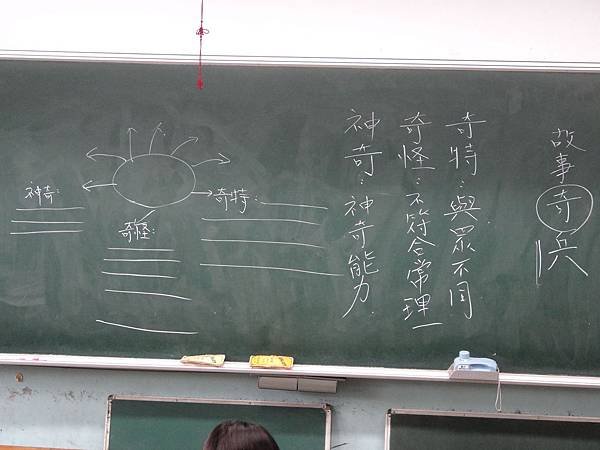 故事奇兵
奇特：與眾不同
奇怪：不符合常理
神奇：神奇能力
神奇：
奇怪：
奇特：